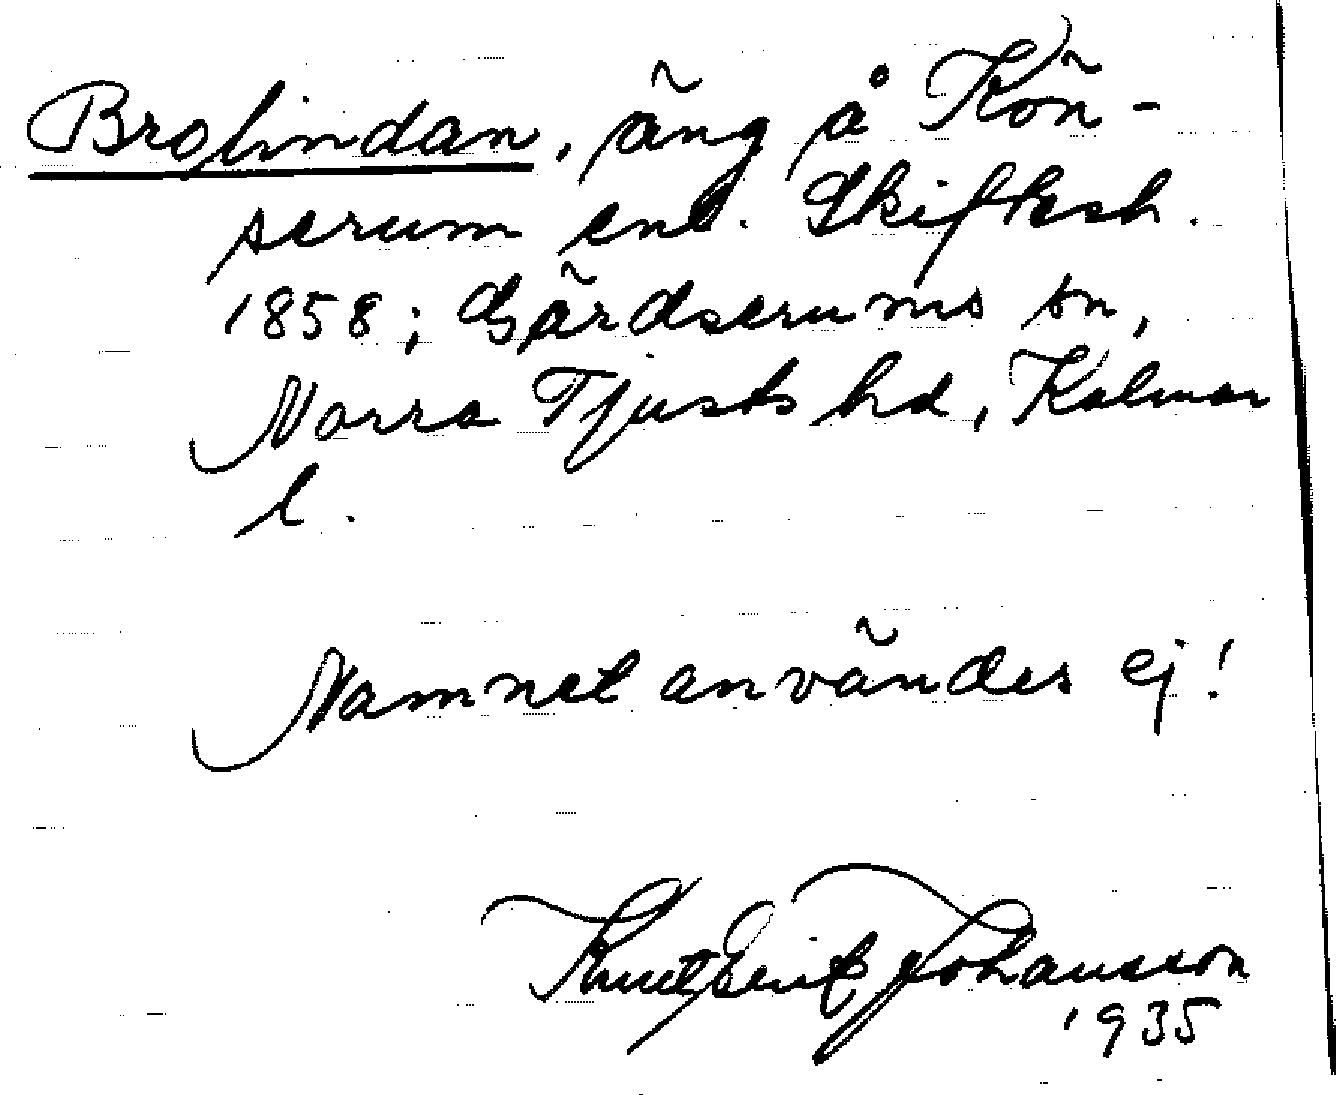 Brolindan, äng å Kön-
serum enl. Skiftesh.
1858; Gärdserums sn,
Norra Tjusts hd, Kalmar
l.
Namnet användes ej!
Knut Erik Johansson
1935